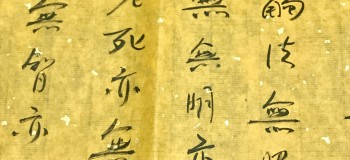 觸法無眼
無無明亦
老死亦無
無智亦